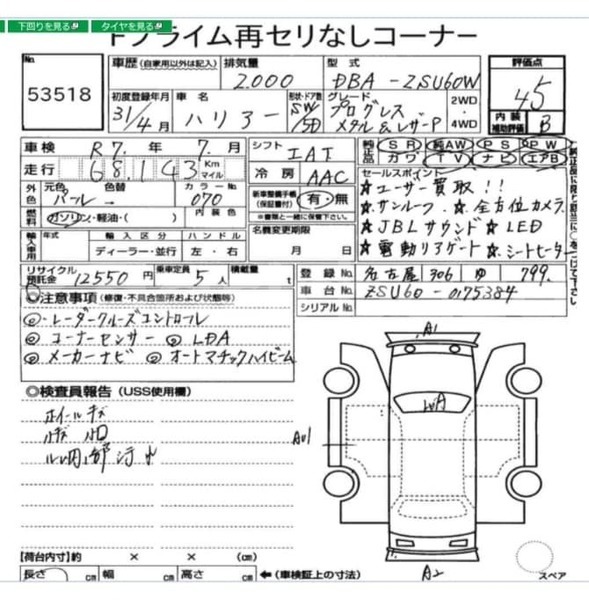 下回りを見る タイヤを見る
Fプライム再セリなしコーナー
No. 53518
車歴 (自家用以外は記入) 排気量 2000 型式 DBA-ZSU60W 評価点 4.5
初度登録年月 31/4月 車名 ハリアー 形状・ドア数 SW/5D グレード プログレス メタル&レザーP 2WD・4WD 内装補助評価 B
車検 R7. 年 7. 月 シフト IAT 純正品 SR 純AW PS PW
走行 68,143 Km マイル 冷房 AAC カワ TV ナビ エアB
外色 元色 パール 色替 カラーNo. 070 新車整備手帳(保証書付) 有・無 ※書類と一緒に保管下さい。
燃料 ガソリン・軽油・( )
セールスポイント
★ユーザー買取!!
★サンルーフ ★全方位カメラ
★JBLサウンド ★LED
★電動リアゲート ★シートヒーター
輸入車用 年式 輸入区分 ディーラー・並行 ハンドル 左・右 名義変更期限 月 日
リサイクル預託金 12550円 乗車定員 5人 積載量 t
登録No. 名古屋 306 ゆ 799
車台No. ZSU60-0175384
シリアルNo.
◎注意事項 (修復・不具合箇所および状態等)
◎レーダークルーズコントロール
◎コーナーセンサー ◎LDA
◎メーカーナビ ◎オートマチックハイビーム
◎検査員報告 (USS使用欄)
ホイールキズ
A1
A2
【荷台内寸】約 × × (cm)
長さ cm 幅 cm 高さ cm ←(車検証上の寸法)
スペア